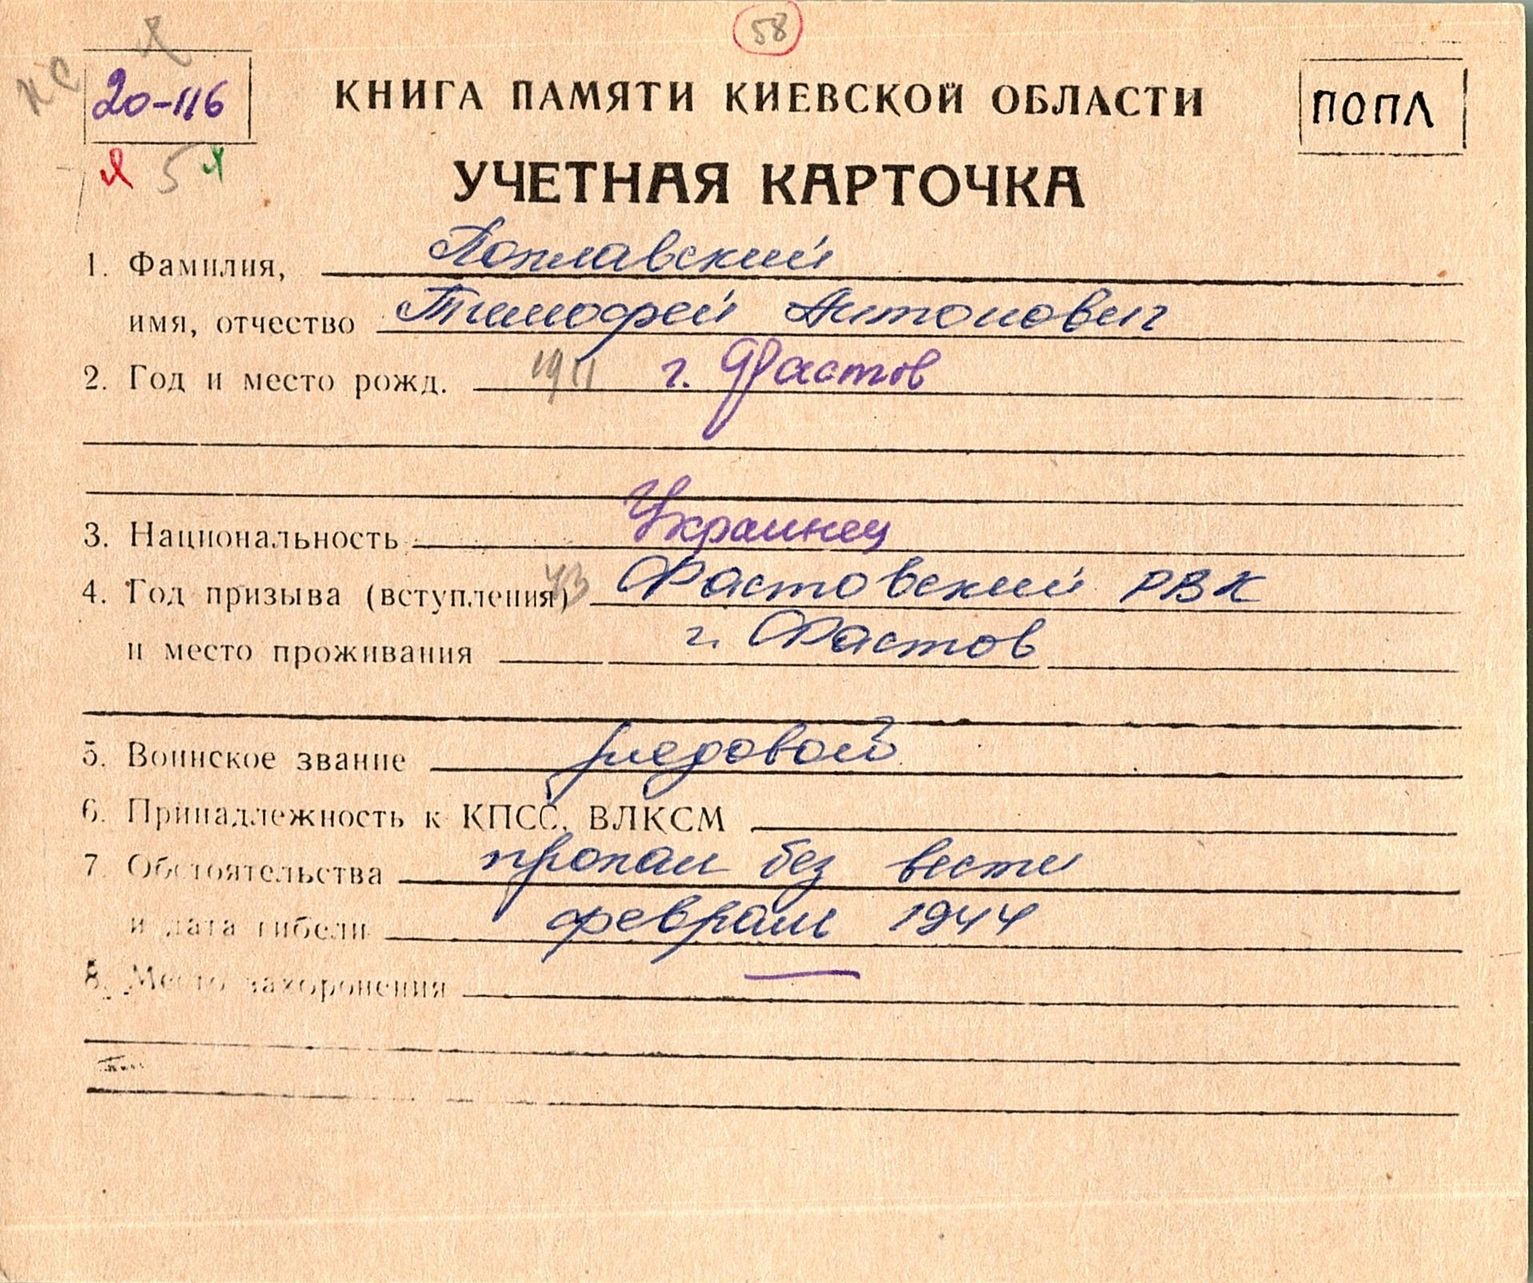 58
20-116
КНИГА ПАМЯТИ КИЕВСКОЙ ОБЛАСТИ
ПОПЛ
5
УЧЕТНАЯ КАРТОЧКА
1. Фамилия, Поплавский
имя, отчество Тимофей Антонович
2. Год и место рожд. 1911 г. Фастов
3. Национальность Украинец
4. Год призыва (вступления) 43 Фастовский РВК
и место проживания г. Фастов
5. Воинское звание рядовой
6. Принадлежность к КПСС, ВЛКСМ
7. Обстоятельства пропал без вести
и дата гибели феврале 1944
8. Место захоронения —